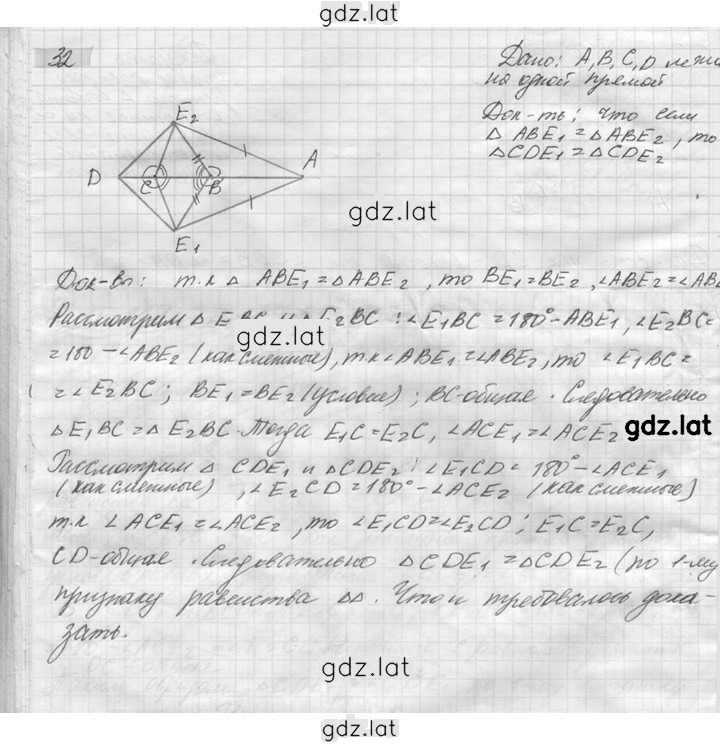 gdz.lat
32
Дано: A, B, C, D
на одной прямой
Док-ть: что если
△ ABE₁ = △ ABE₂, то
△ CDE₁ = △ CDE₂
E₂
D C B A
E₁
gdz.lat
Док-во: т.к △ ABE₁ = △ ABE₂, то BE₁ = BE₂, ∠ABE₂ =
Рассмотрим △ E₂BC : ∠E₁BC = 180° - ABE₁, ∠E₂BC =
gdz.lat
= 180 - ∠ABE₂ (как смежные), т.к ∠ABE₁ = ∠ABE₂, то ∠E₁BC =
= ∠E₂BC; BE₁ = BE₂ (условие); BC - общая. Следовательно
△ E₁BC = △ E₂BC. Тогда E₁C = E₂C, ∠ACE₁ = ∠ACE₂
gdz.lat
Рассмотрим △ CDE₁ и △ CDE₂: ∠E₁CD = 180° - ∠ACE₁
(как смежные), ∠E₂CD = 180° - ∠ACE₂ (как смежные)
т.к ∠ACE₁ = ∠ACE₂, то ∠E₁CD = ∠E₂CD; E₁C = E₂C,
CD - общая. Следовательно △ CDE₁ = △ CDE₂ (по 1-му
признаку равенства △△. Что и требовалось дока-
зать.
gdz.lat
gdz.lat